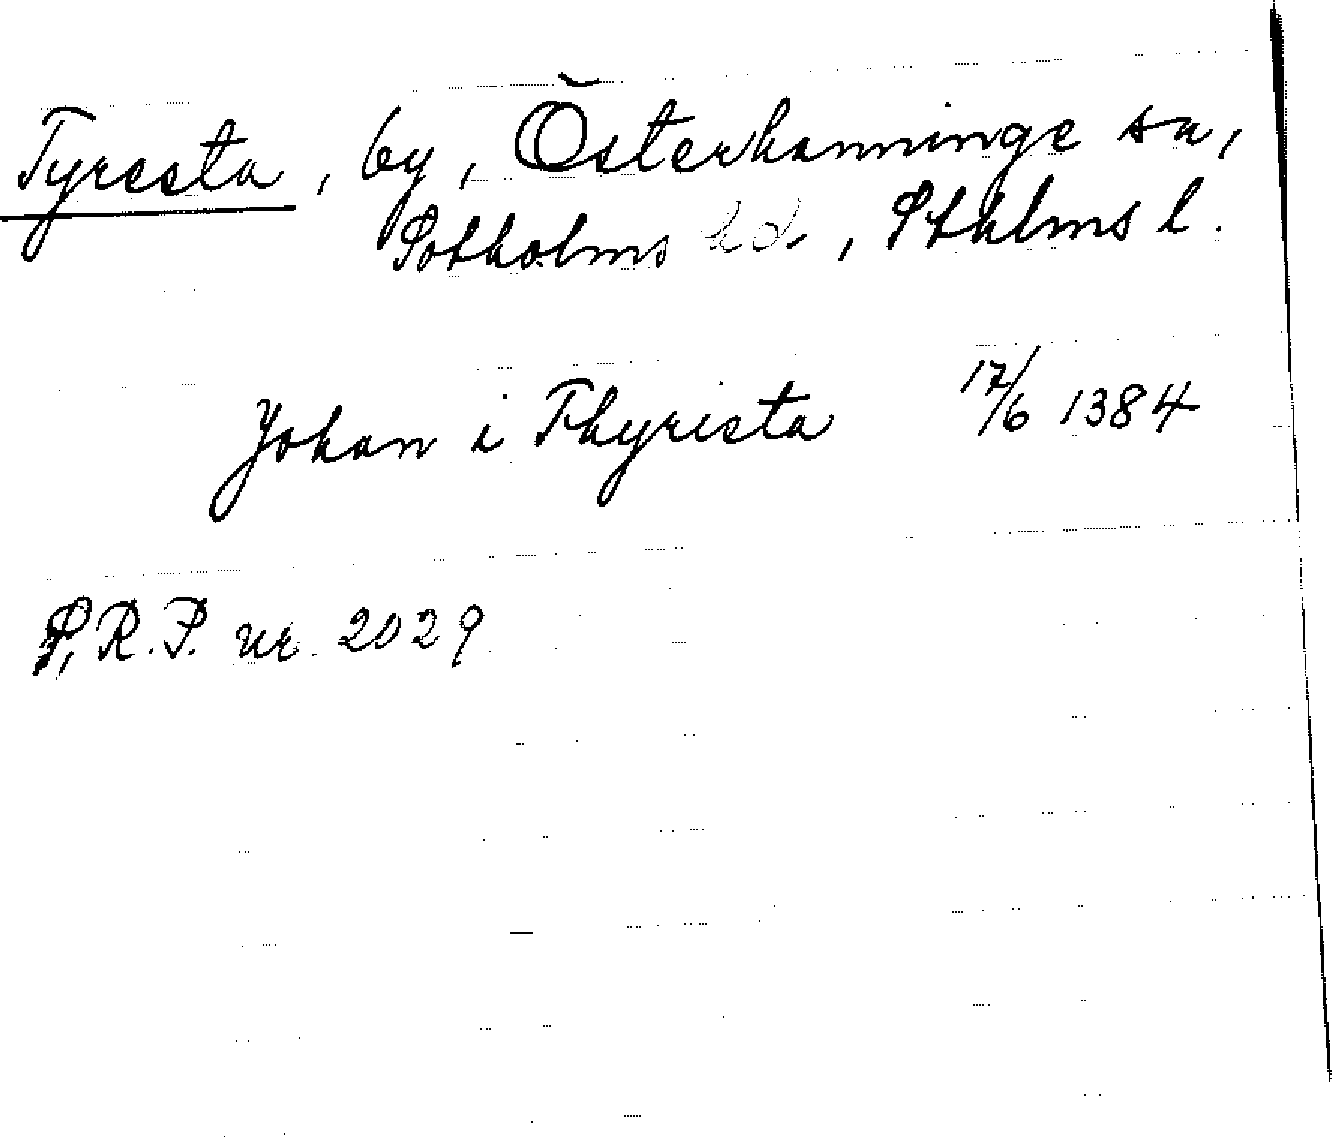 Tyresta, by, Österhanninge sn,
Sotholms hd., Sthlms l.
Johan i Thyrista 17/6 1384
S.R.P. nr. 2029